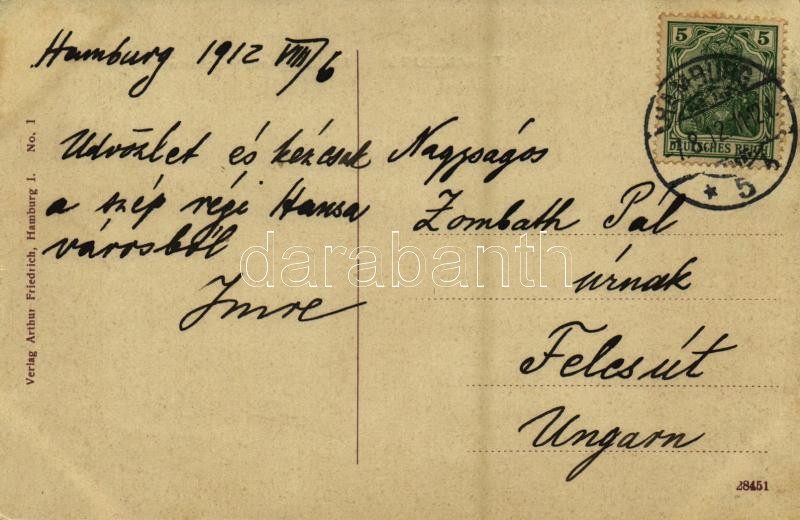 Hamburg 1912 VIII/6
Üdvözlet és kézcsók
a szép régi Hansa
városból
Imre
Nagyságos
Zombath Pál
úrnak
Felcsút
Ungarn
5 5
DEUTSCHES REICH
HAMBURG
* 5
Verlag Arthur Friedrich, Hamburg 1. No. 1
28451
darabanth